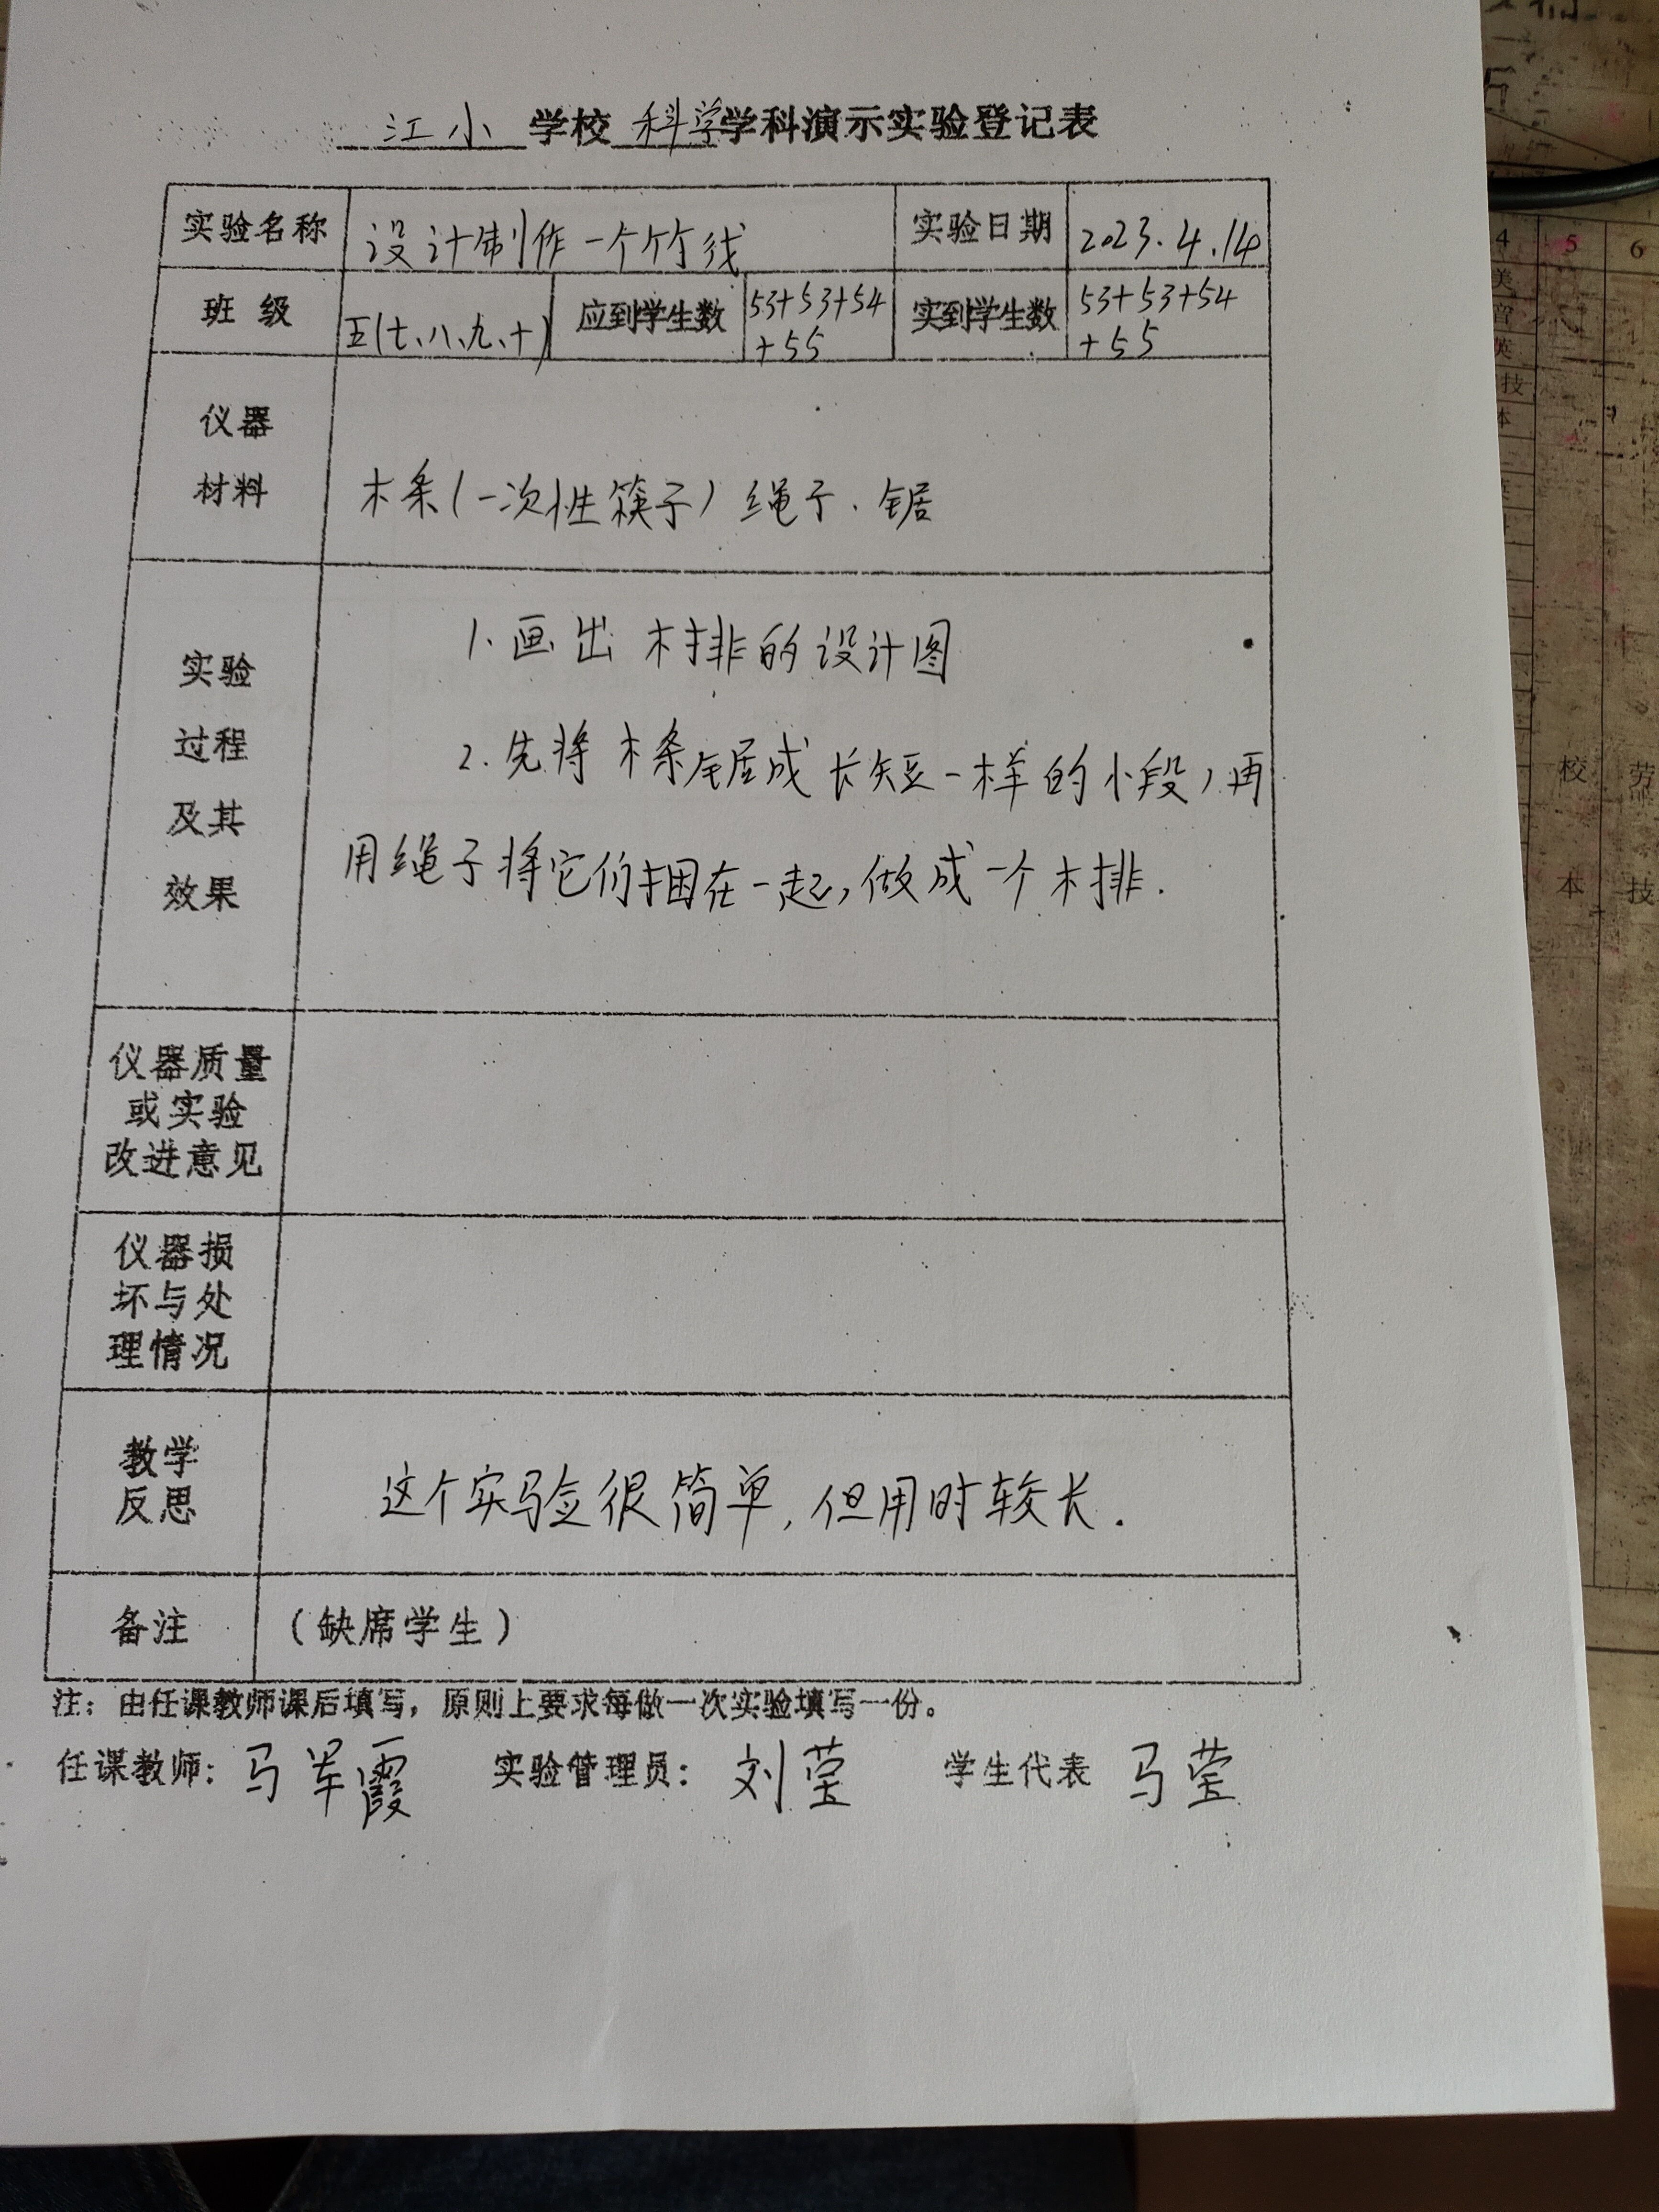 江小 学校 科学学科演示实验登记表
实验名称 设计制作一个竹筏 实验日期 2023.4.14
班级 五(七、八、九、十) 应到学生数 53+53+54+55 实到学生数 53+53+54+55
仪器
材料 木条(一次性筷子) 绳子. 锯
实验
过程
及其
效果
1. 画出木排的设计图
2. 先将木条锯成长短一样的小段,再
用绳子将它们捆在一起,做成一个木排.
仪器质量
或实验
改进意见
仪器损
坏与处
理情况
教学
反思 这个实验很简单, 但用时较长.
备注 (缺席学生)
注:由任课教师课后填写,原则上要求每做一次实验填写一份。
任课教师: 马军霞 实验管理员: 刘莹 学生代表 马莹
4 5 6
美
音
英
技
本
校 劳
本 技